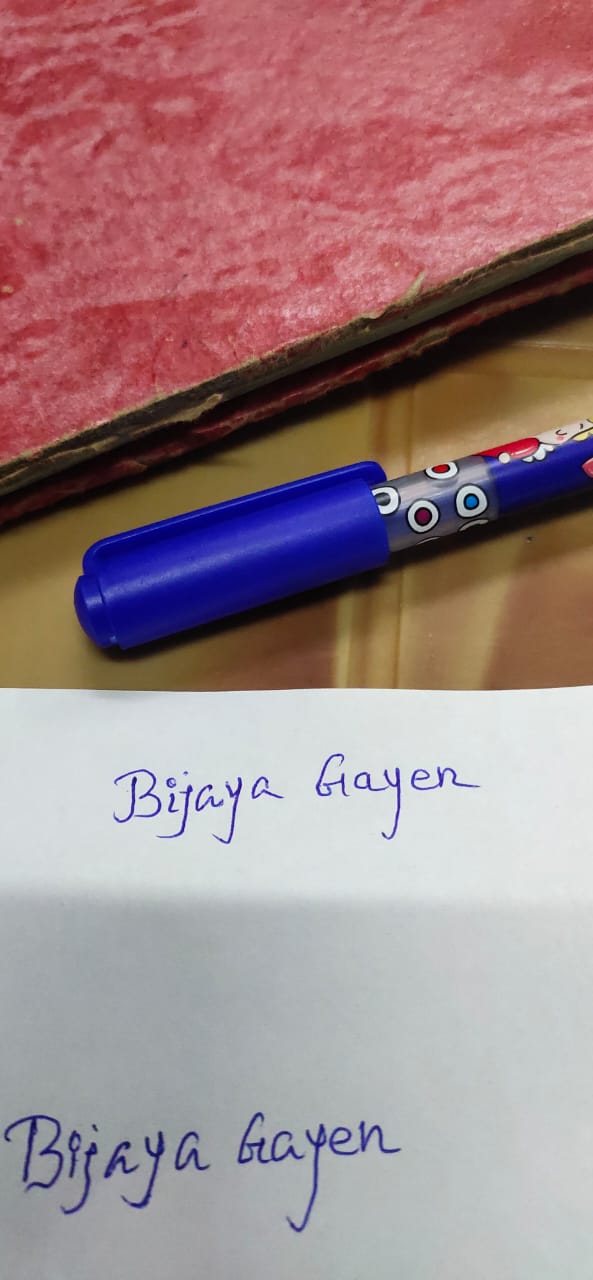 Bijaya Gayen
Bijaya Gayen